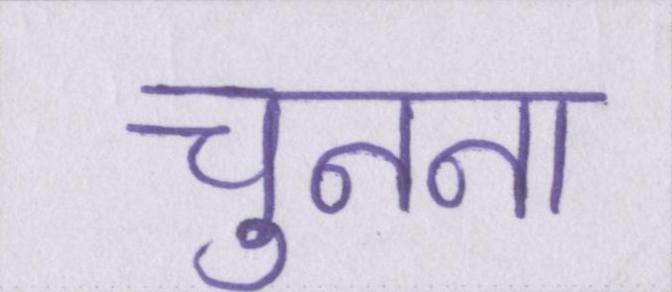 चुनना